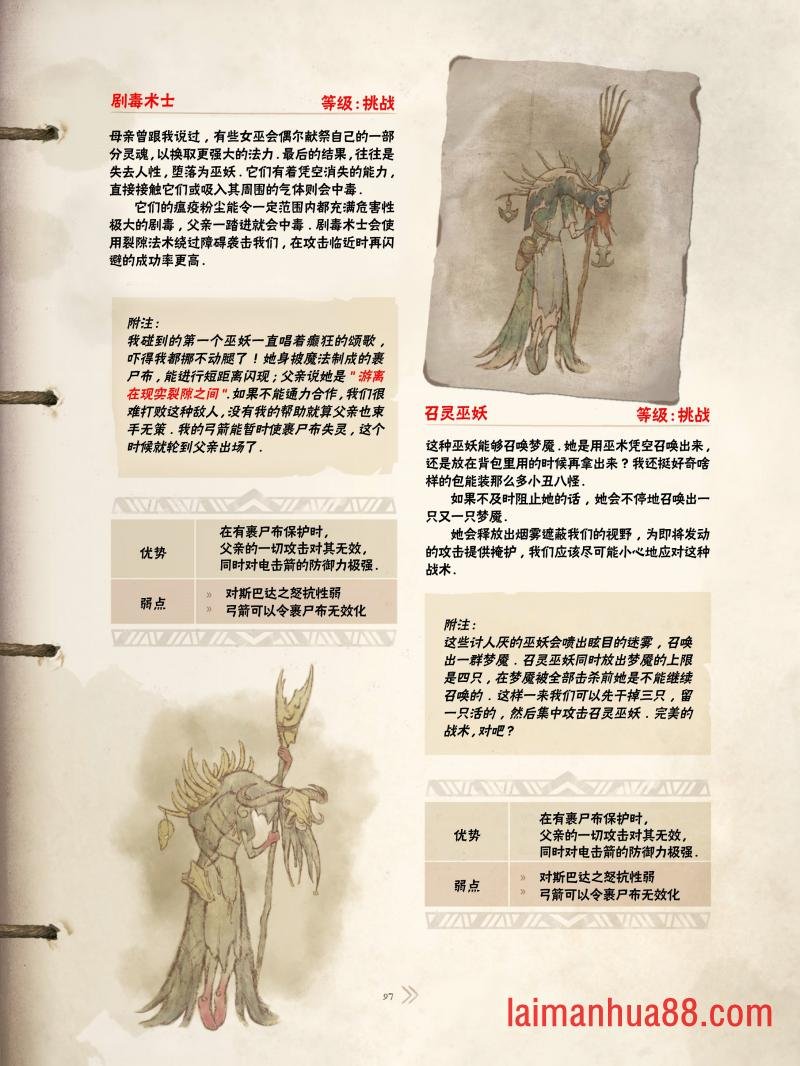 剧毒术士 等级:挑战
母亲曾跟我说过，有些女巫会偶尔献祭自己的一部
分灵魂,以换取更强大的法力.最后的结果,往往是
失去人性,堕落为巫妖.它们有着凭空消失的能力,
直接接触它们或吸入其周围的气体则会中毒.
它们的瘟疫粉尘能令一定范围内都充满危害性
极大的剧毒，父亲一踏进就会中毒．剧毒术士会使
用裂隙法术绕过障碍袭击我们，在攻击临近时再闪
避的成功率更高．
附注:
我碰到的第一个巫妖一直唱着癫狂的颂歌，
吓得我都挪不动腿了！她身被魔法制成的裹
尸布，能进行短距离闪现；父亲说她是"游离
在现实裂隙之间".如果不能通力合作,我们很
难打败这种敌人,没有我的帮助就算父亲也束
手无策．我的弓箭能暂时使裹尸布失灵，这个
时候就轮到父亲出场了．
优势
在有裹尸布保护时,
父亲的一切攻击对其无效,
同时对电击箭的防御力极强.
弱点
» 对斯巴达之怒抗性弱
» 弓箭可以令裹尸布无效化
召灵巫妖 等级:挑战
这种巫妖能够召唤梦魇.她是用巫术凭空召唤出来,
还是放在背包里用的时候再拿出来？我还挺好奇啥
样的包能装那么多小丑八怪.
如果不及时阻止她的话，她会不停地召唤出一
只又一只梦魇.
她会释放出烟雾遮蔽我们的视野，为即将发动
的攻击提供掩护，我们应该尽可能小心地应对这种
战术.
附注:
这些讨人厌的巫妖会喷出眩目的迷雾，召唤
出一群梦魇．召灵巫妖同时放出梦魇的上限
是四只，在梦魇被全部击杀前她是不能继续
召唤的．这样一来我们可以先干掉三只，留
一只活的，然后集中攻击召灵巫妖．完美的
战术,对吧?
优势
在有裹尸布保护时,
父亲的一切攻击对其无效,
同时对电击箭的防御力极强.
弱点
» 对斯巴达之怒抗性弱
» 弓箭可以令裹尸布无效化
97 »
laimanhua88.com